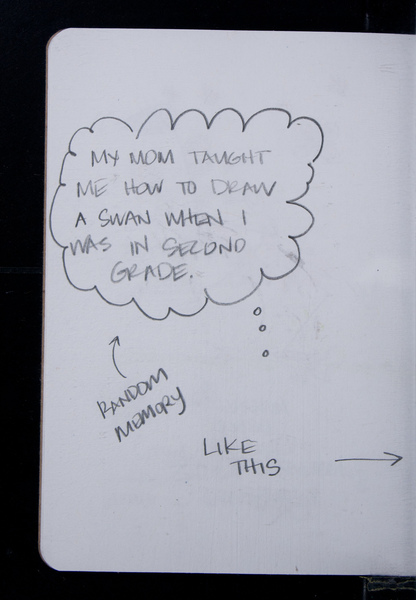 MY MOM TAUGHT
ME HOW TO DRAW
A SWAN WHEN I
WAS IN SECOND
GRADE.
RANDOM
MEMORY
LIKE
THIS